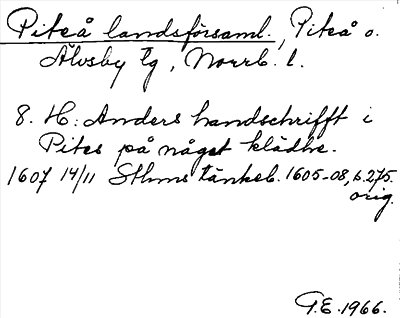 Piteå landsförsaml., Piteå o.
Älvsby tg, Norrb. l.
8. H: Anders handschrifft i
Pites på någet klädhe.
1607 14/11 Sthms tänkeb. 1605-08, s. 275.
orig.
G.E. 1966.